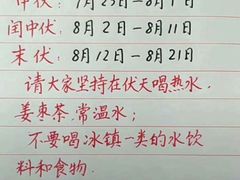 中伏: 7月23日—8月1日
闰中伏: 8月2日—8月11日
末伏: 8月12日—8月21日
请大家坚持在伏天喝热水.
姜枣茶.常温水;
不要喝冰镇一类的水饮
料和食物.